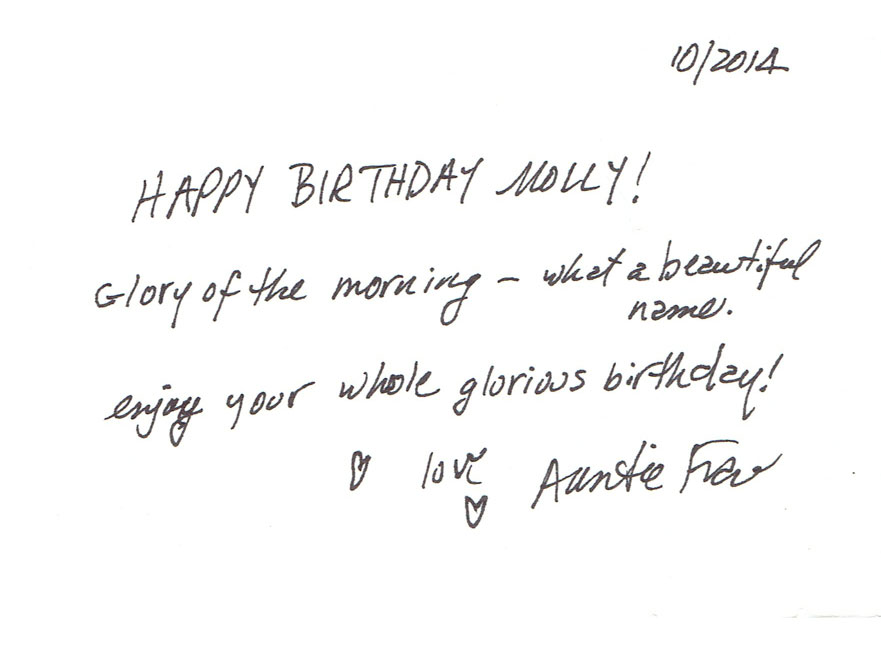 10/2014
HAPPY BIRTHDAY MOLLY!
Glory of the morning – what a beautiful
name.
enjoy your whole glorious birthday!
love Auntie Fran